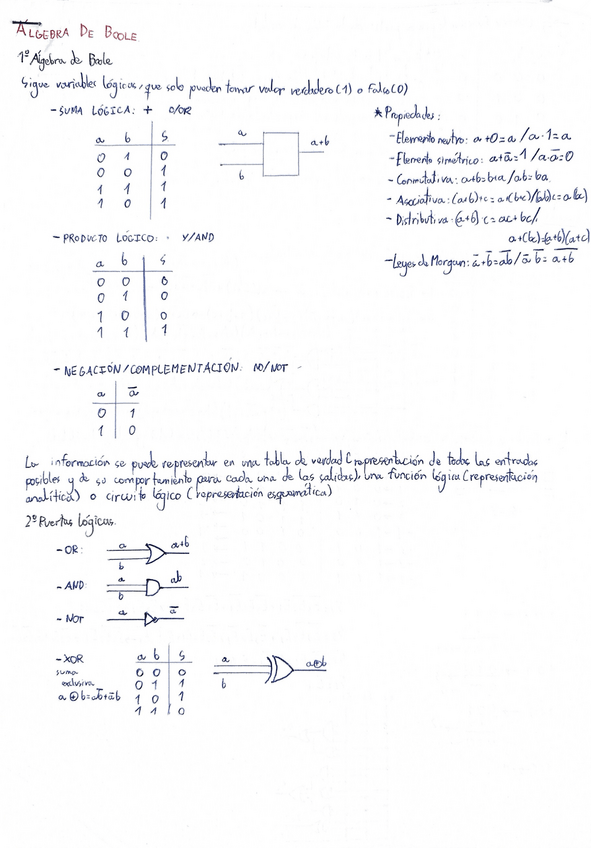 ÁLGEBRA DE BOOLE
1º Álgebra de Boole
Sigue variables lógicas, que solo pueden tomar valor verdadero (1) o Falso (0)
- SUMA LÓGICA: + O/OR
a b S
0 1 0
0 0 1
1 1 1
1 0 1
a
b
a+b
* Propiedades:
- Elemento neutro: a+0=a / a·1=a
- Elemento simétrico: a+a̅=1 / a·a̅=0
- Conmutativa: a+b=b+a / ab=ba
- Asociativa: (a+b)+c=a+(b+c)/(ab)c=a(bc)
- Distributiva: (a+b)·c=ac+bc/
a+(bc)=(a+b)(a+c)
- Leyes de Morgan: a̅+b̅=a̅b̅ / a̅ b̅= a̅+̅b̅
- PRODUCTO LÓGICO: · Y/AND
a b S
0 0 0
0 1 0
1 0 0
1 1 1
- NEGACIÓN/COMPLEMENTACIÓN: NO/NOT
a a̅
0 1
1 0
La información se puede representar en una tabla de verdad (representación de todas las entradas
posibles y de su comportamiento para cada una de las salidas), una función lógica (representación
analítica) o circuito lógico (representación esquemática)
2º Puertas lógicas.
- OR: a b a+b
- AND: a b ab
- NOT a a̅
- XOR
suma
exclusiva
a⊕b=ab̅+a̅b
a b S
0 0 0
0 1 1
1 0 1
1 1 0
a
b
a⊕b